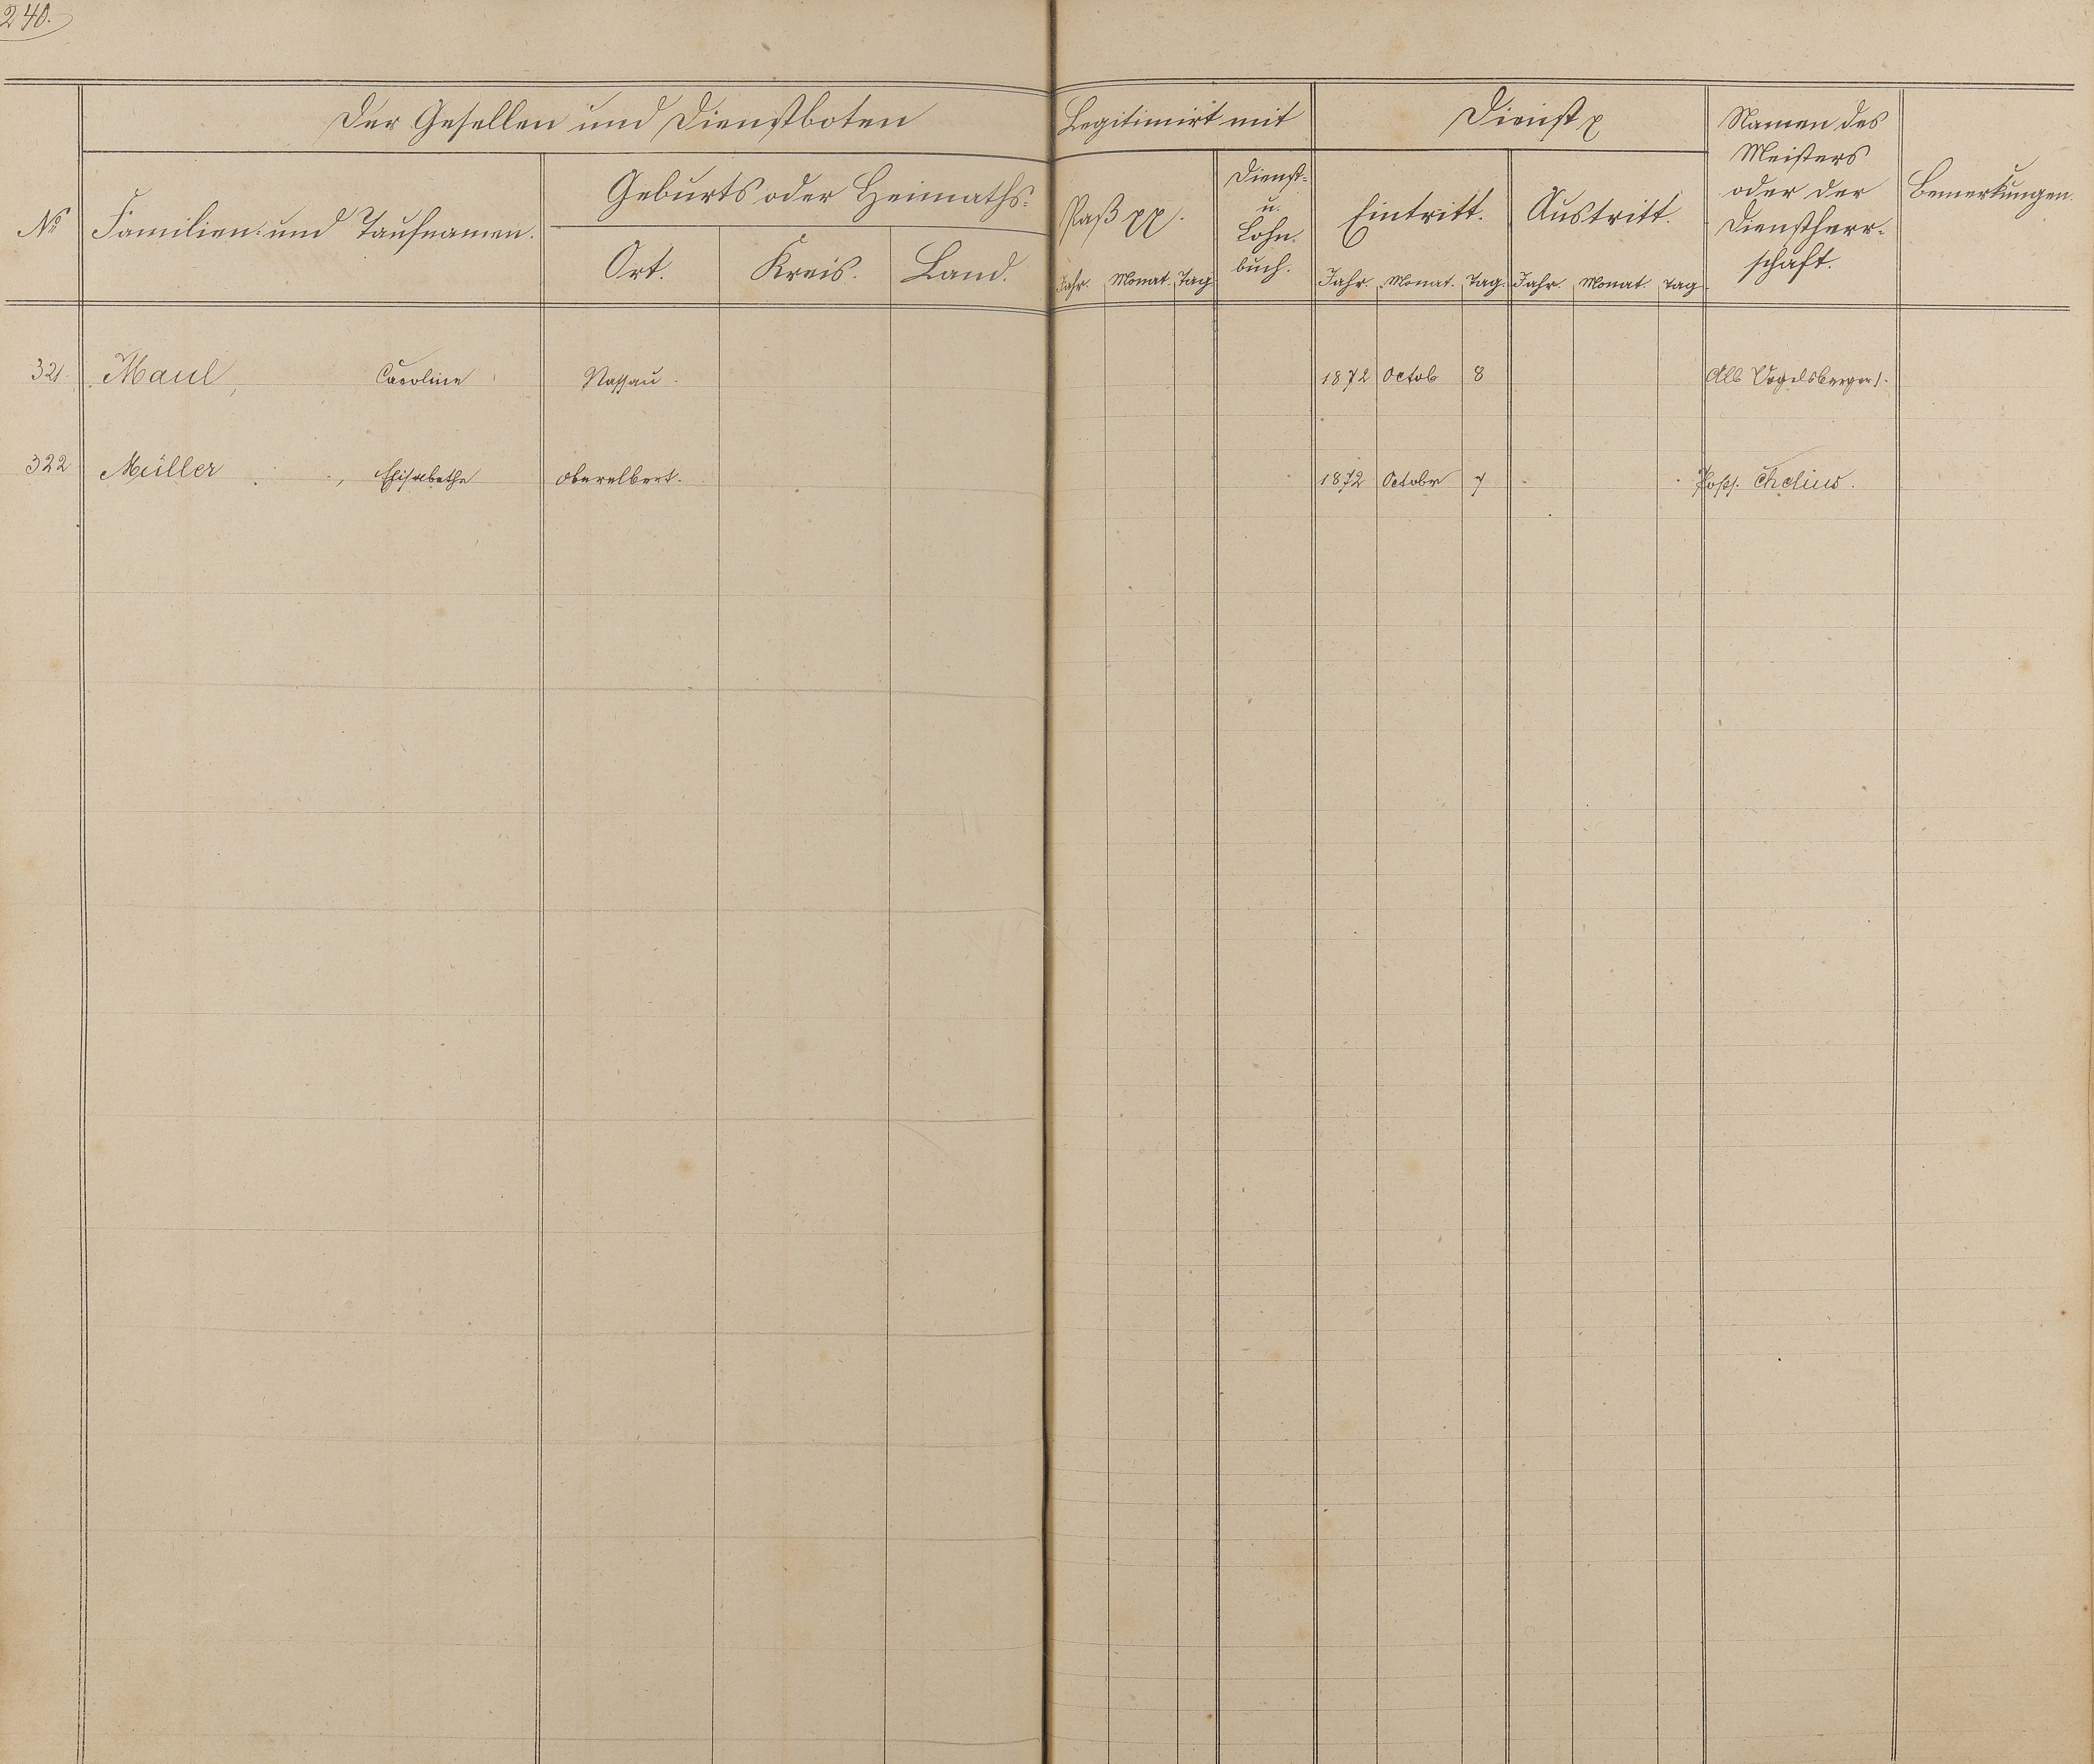 240.
Der Gesellen und Dienstboten
Legitimirt mit
Dienst
Namen des
Meisters
oder der
Dienstherr-
schaft.
Bemerkungen.
No
Familien- und Taufnamen.
Geburts oder Heimaths-
Ort.
Kreis.
Land.
Paß pp.
Dienst-
u.
Lohn-
buch.
Eintritt.
Austritt.
Jahr. Monat. Tag.
Jahr. Monat. Tag.
Jahr. Monat. Tag
321. Maul, Caroline Nassau. 1872 Octob 8 Alb Vogelsberger
322 Müller, Elisabethe Oberelbert. 1872 Octobr 7 Chelius.